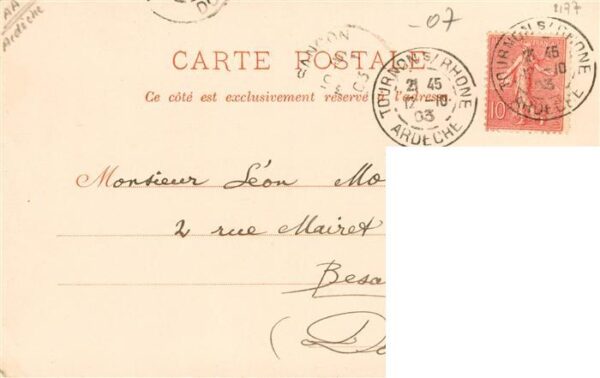 AA
Ardèche
-07
CARTE POSTALE
Ce côté est exclusivement réservé à l'adresse
TOURNON S/ RHONE
21 45
12 - 10
03
ARDECHE
TOURNON S/ RHONE
45
10
03
ARDECHE
10
Monsieur Léon Mo
2 rue Mairet
Besa
(D